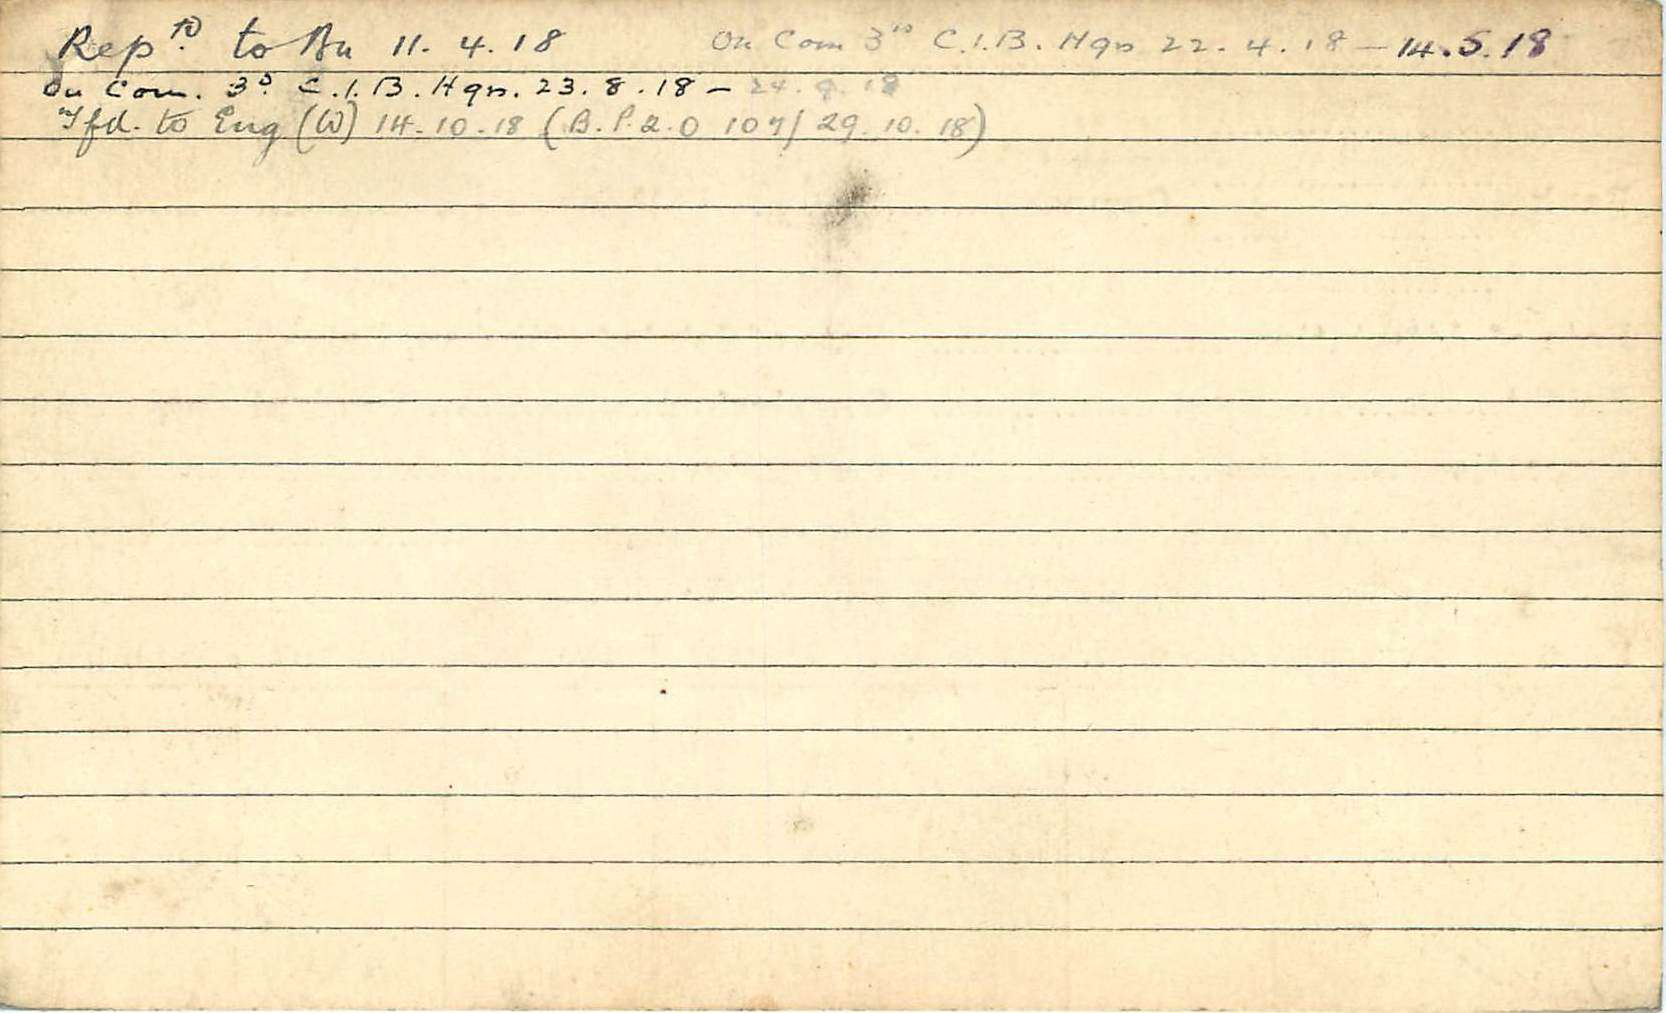 Rep.td to Bn 11. 4. 18 On Com 3rd C.I.B. Hqrs 22. 4. 18 - 14.5.18
On Com. 3d. C.I.B. Hqrs. 23. 8. 18 - 24. 9. 18
Tfd. to Eng (W) 14-10-18 (B.P.2.O 107/ 29. 10. 18)